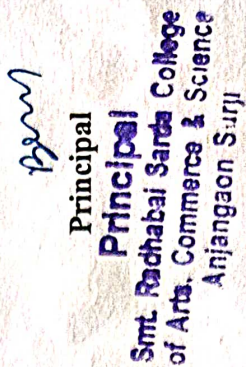 Principal
Principal
Smt. Radhabai Sarda College
of Arts, Commerce & Science
Anjangaon Surji